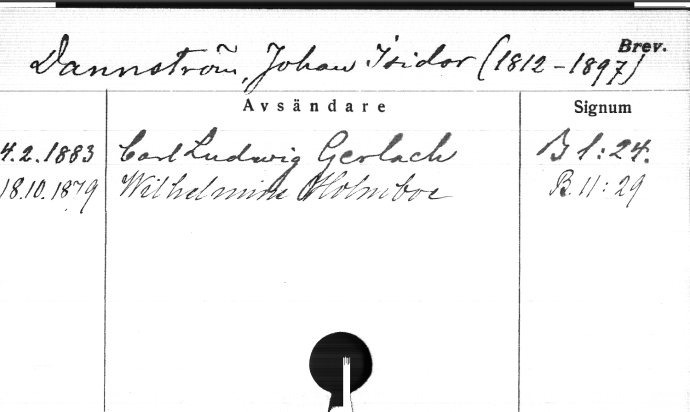 Brev.
Dannström, Johan Isidor (1812-1897)
Avsändare Signum
4.2.1883 Carl Ludwig Gerlach B 1:24.
18.10.1879 Wilhelmine Holmboe B.11:29